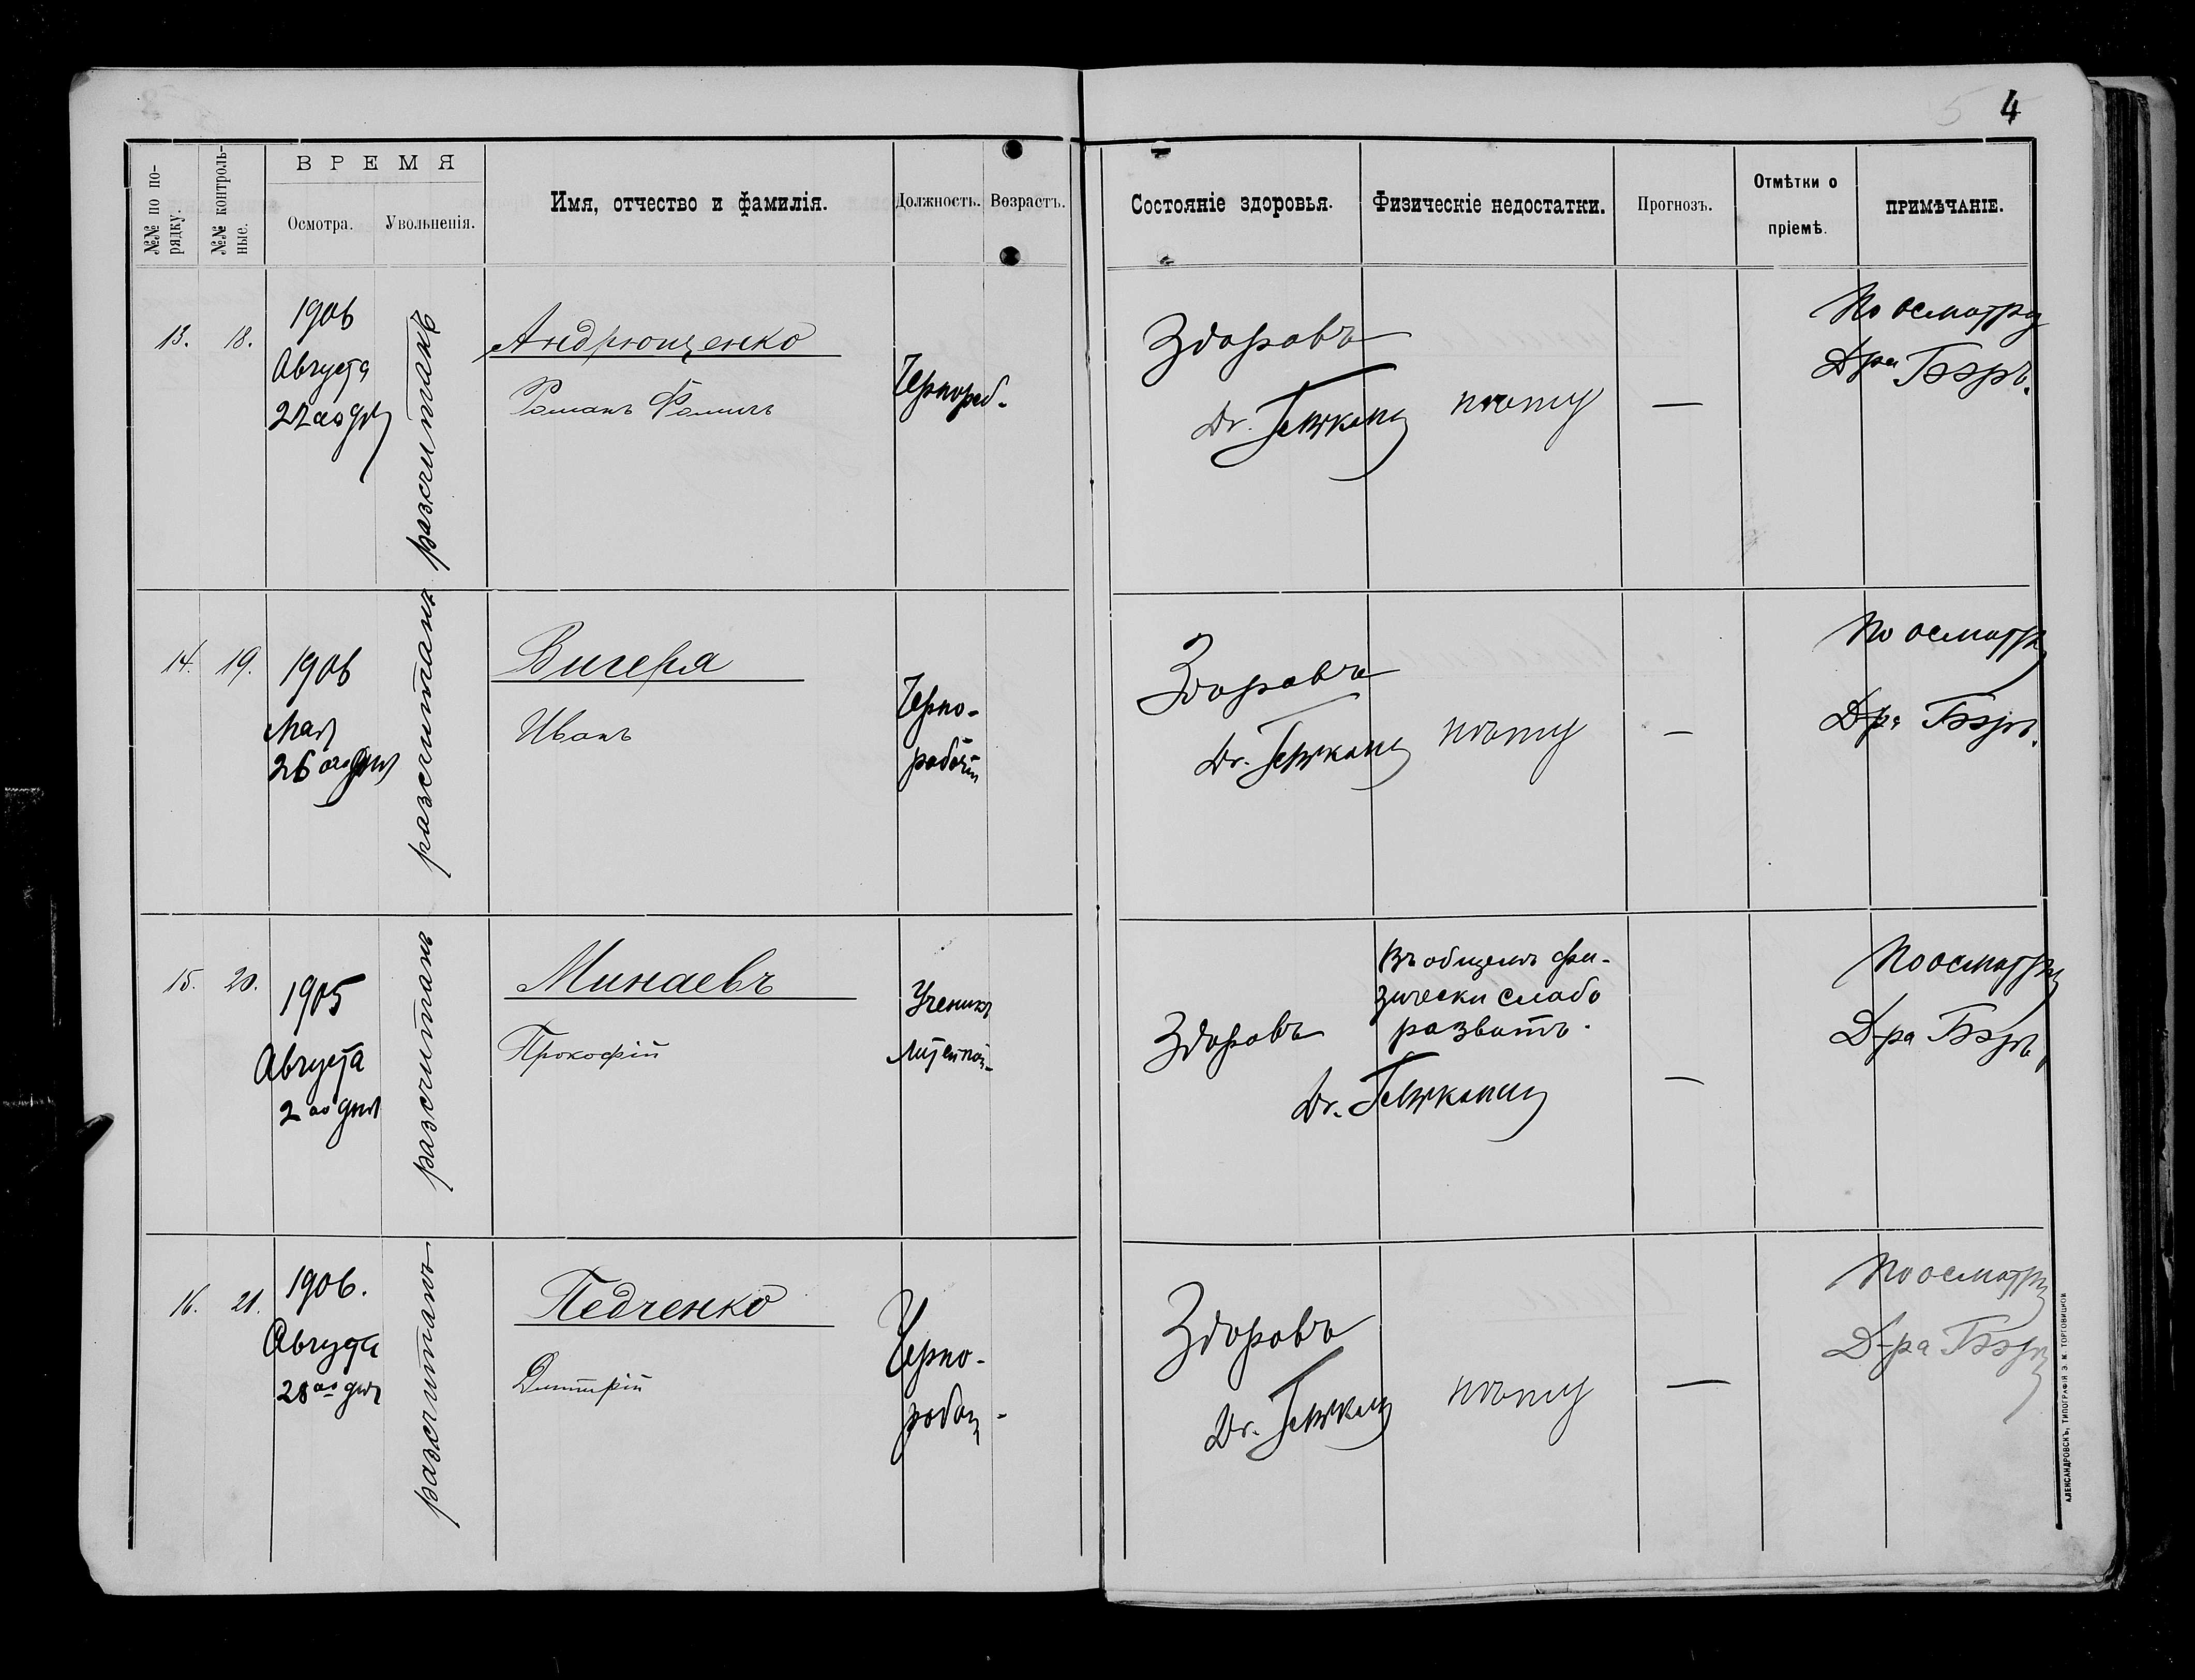 4
№№ по по-
рядку.
№№ контроль-
ные.
ВРЕМЯ
Осмотра.
Увольненія.
Имя, отчество и фамилія.
Должность.
Возрастъ.
Состояніе здоровья.
Физическіе недостатки.
Прогнозъ.
Отмѣтки о
пріемѣ.
ПРИМѢЧАНІЕ.
13.
18.
1906
Августа
27 го дня
разсчитанъ
Андрющенко
Романъ Фомичъ
Чернораб.
Здоровъ
Dr.
нѣту
—
По осмотру
Д-ра Бэръ.
14.
19.
1906
Мая
26 ого дня
разсчитанъ
Вигеря
Иванъ
Черно-
рабочій
Здоровъ
Dr.
нѣту
—
По осмотру
Д-ра Бэръ.
15.
20.
1905
Августа
2 го дня
разсчитанъ
Минаевъ
Прокофій
Ученикъ
Литейной
Здоровъ
Въ общемъ фи-
зически слабо
развитъ.
Dr.
—
По осмотру
Д-ра Бэръ
16.
21.
1906.
Августа
28 го дня
разсчитанъ
Педченко
Дмитрій
Черно-
рабоч.
Здоровъ
Dr.
нѣту
—
По осмотру
Д-ра Бэръ
АЛЕКСАНДРОВСКЪ, ТИПОГРАФІЯ Э. М. ТОРГОВИЦКОЙ